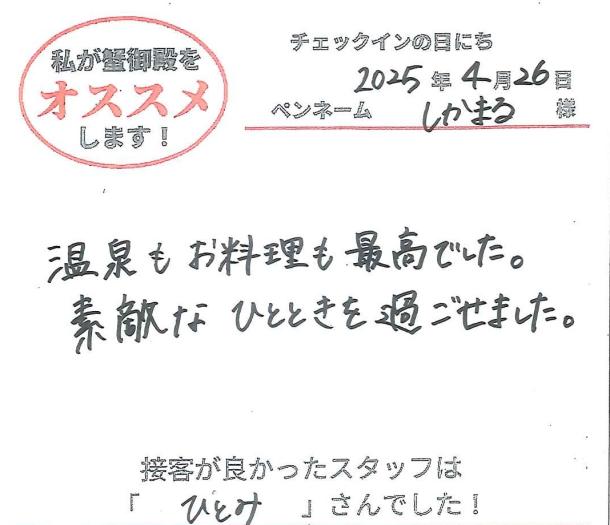 私が蟹御殿を
オススメ
します！
チェックインの日にち
2025年4月26日
ペンネーム しかまる 様
温泉もお料理も最高でした。
素敵なひとときを過ごせました。
接客が良かったスタッフは
「 ひとみ 」さんでした！